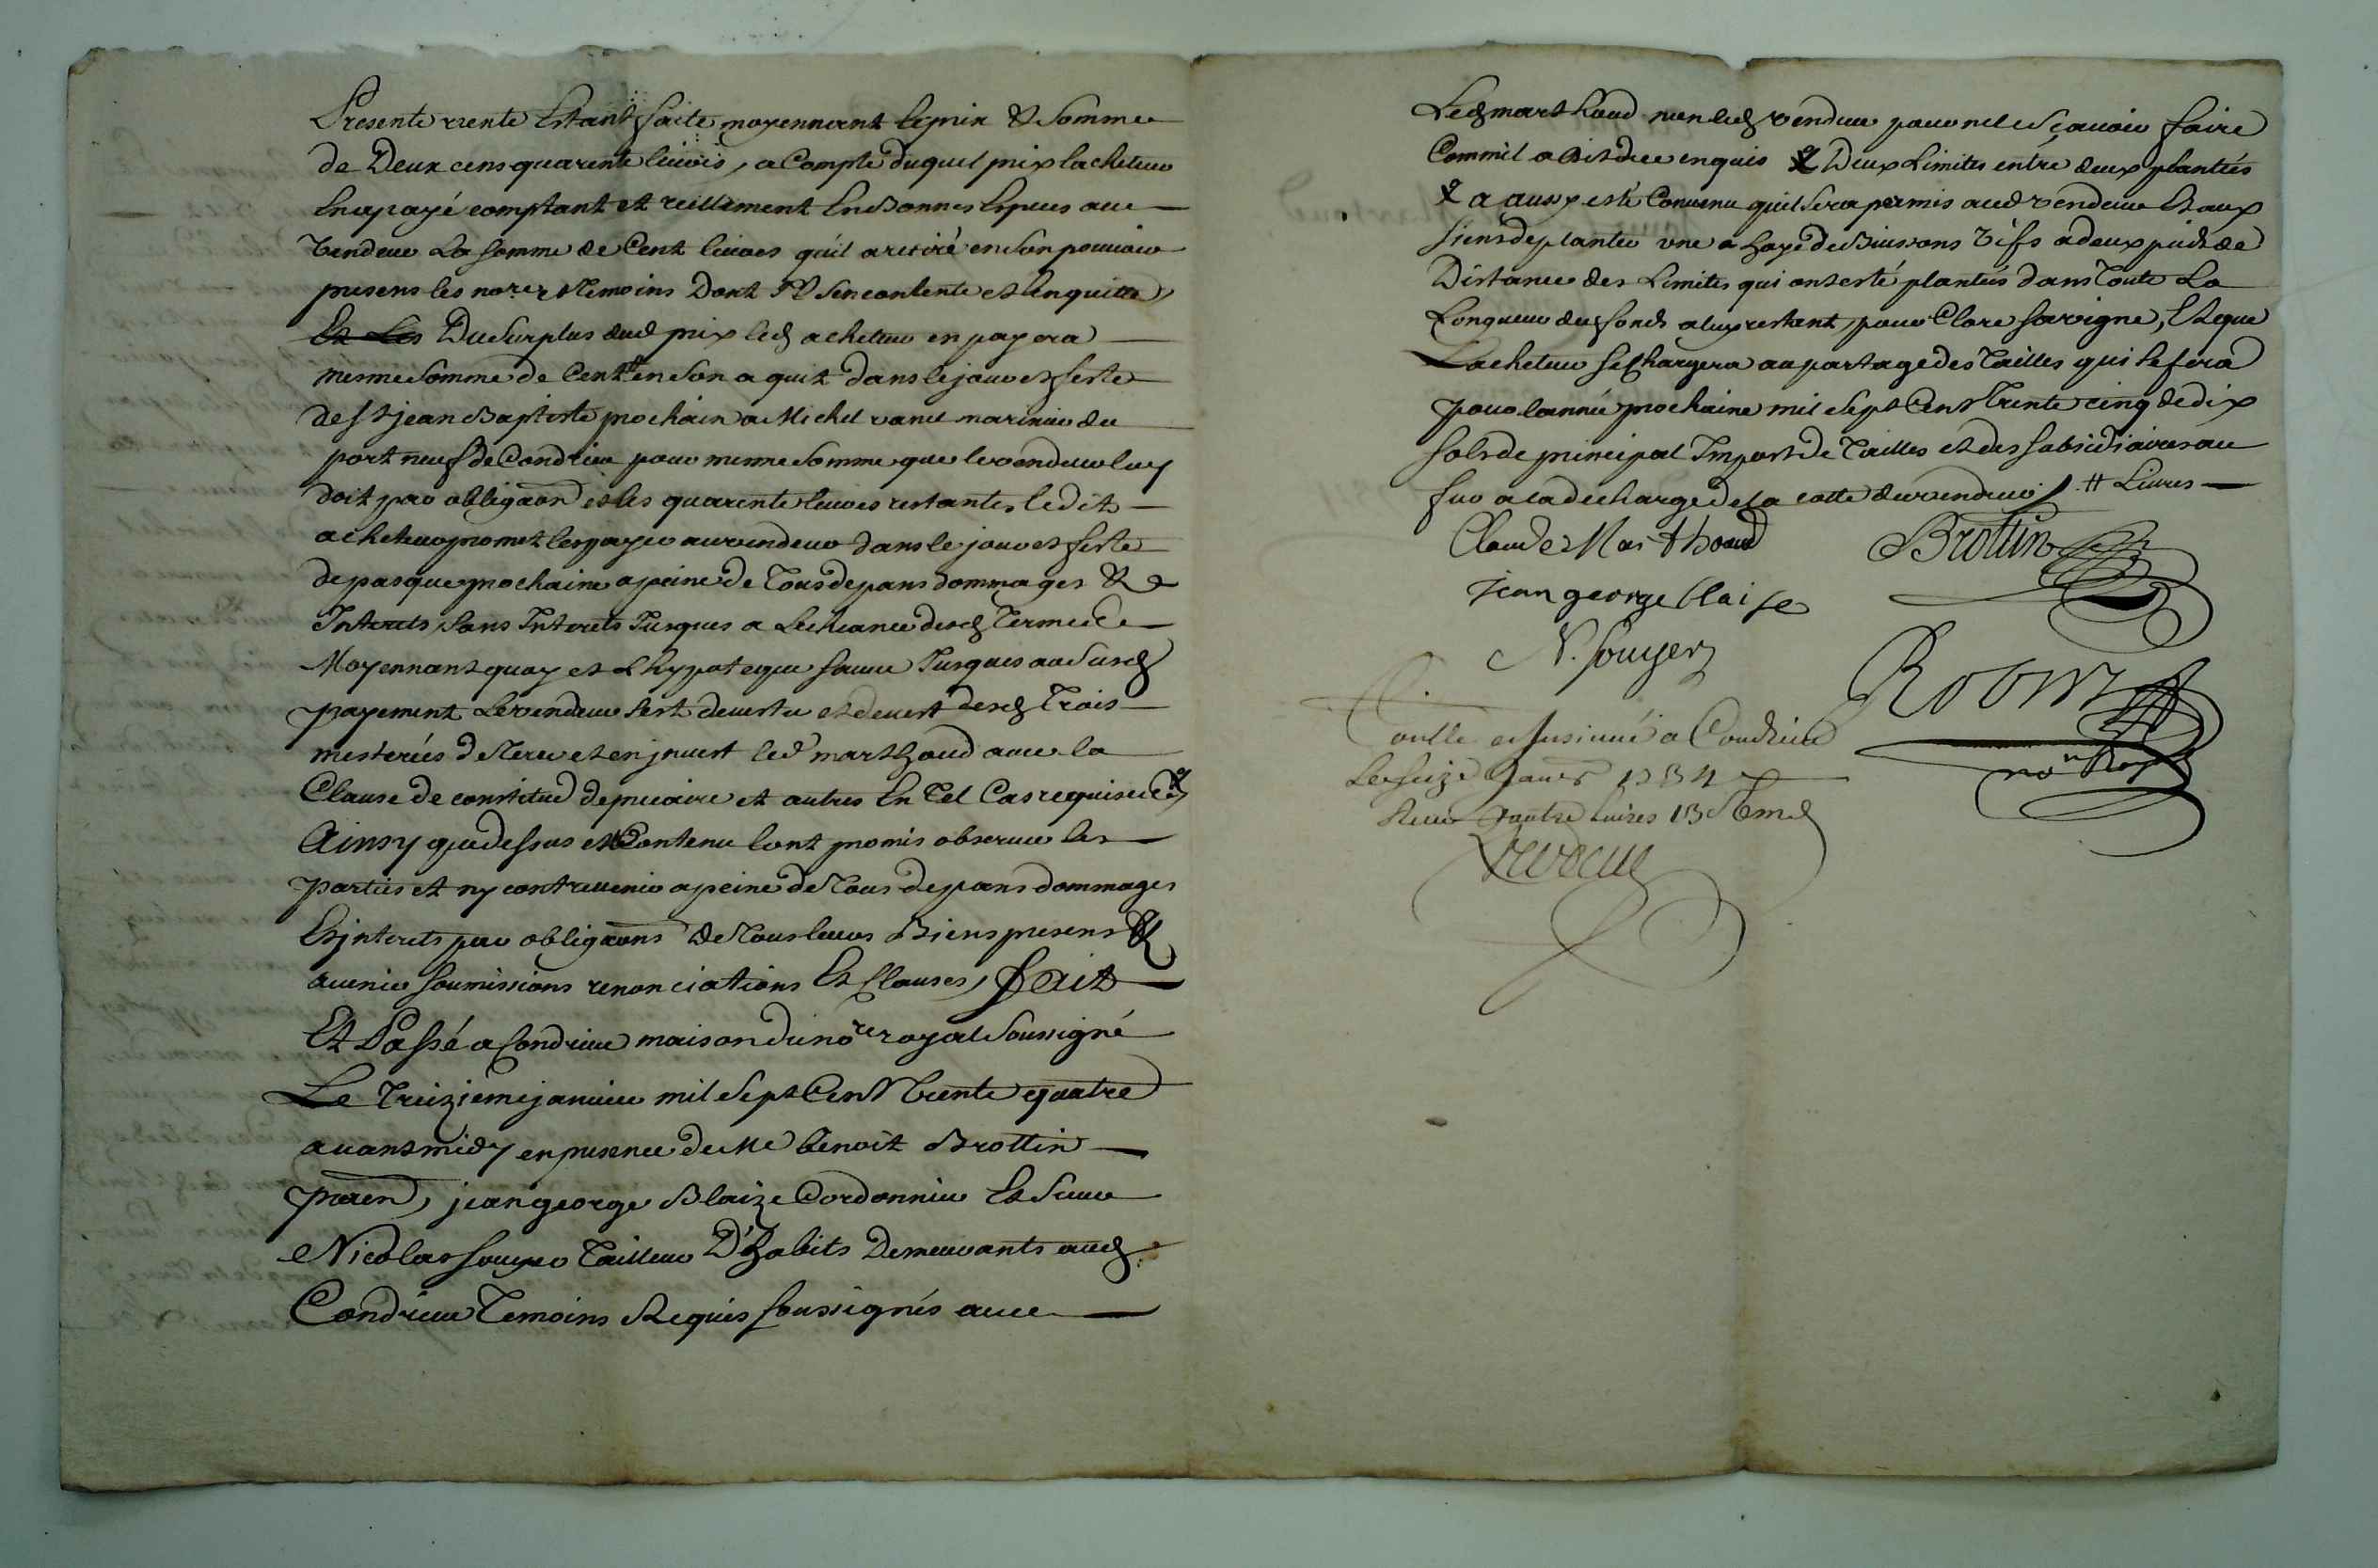 Presente vente Estant faite moyennant le prix & Somme
de Deux cens quarente livres, a Compte duquel prix lacheteur
En a payé comptant et reellement En Bonnes Especes au
Vendeur La somme de Cent livres qu'il a retiré en son pouvoir
presens les nore & Temoins Dont Il Sen contente et En quitte,
Et Les Du Surplus dud prix led acheteur en payera
mesme Somme de Cent ₶ en Son aquit dans le jour et feste
de St jean Baptiste prochain a Michel vanel marinier du
port neuf de Condrieu pour mesme Somme que le vendeur luy
doit par obligaon et les quarente livres restantes ledit
acheteur promet les payer au vendeur dans le jour et feste
de pasque prochaine a peine de Tous depans dommages &
Interets, Sans Interets Jusques a Lecheance desd Termes &
Moyennant quoy et Lhypoteque Sauve Jusques aud
payement Le vendeur sest devestu et devest desd Trois
mesterées de Terre et en jnvest led marthaud avec la
Clause de constitud de precaire et autres En Tel Cas requises &
Ainsy que dessus est Contenu lont promis observer les
parties et ny contrevenir a peine de Tous depans dommages
Et jnterets par obligaons de Tous leurs Biens presens &
avenir Soumissions renonciations Et Clauses, fait
Et Passé a Condrieu maison du nore royal Soussigné
Le Treizieme janvier mil Sept Cent Trente quatre
avant midy en presence de Me Benoit Brottin
praen, jean george Blaize Cordonnier Et Sieur
Nicolas souyer Tailleur D'habits Demeurants aud
Condrieu Temoins Requis soussignés avec
Led marthaud non led vendeur pour ne le sçavoir faire
Comm'il a dit de ce enquis & Deux Limites entre deux plantées
& a aussy esté Convenu quil Sera permis aud vendeur Et aux
siens de planter une haye de Buissons Vifs a deux pieds de
Distance des Limites qui ont esté plantées dans Toute La
Longueur du fonds a luy restant, pour Clore sa vigne, Et que
Lacheteur se Chargera au partage des Tailles qui se fera
pour lannée prochaine mil Sept Cent Trente cinq de dix
sols de principal Import de Tailles et des subsidiaires au
fur a la decharge de la cotte du vendeur ₶ Livres
Claude Marthoud Brottin
jean george blaise
N. Souyer
Robin
nore Roy
Conlle et Insinué a Condrieu
Le seize Janvr 1734
Receu quatre livres 13 s 6 d